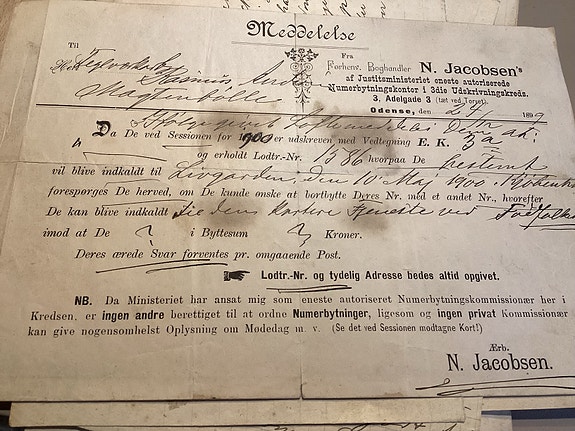 Meddelelse
Til
Fra
Rasmus
Magtenbölle
Forhenv. Boghandler N. Jacobsen's
af Justitsministeriet eneste autoriserede
Numerbytningskontor i 3die Udskrivningskreds.
3, Adelgade 3 (tæt ved Torvet).
Odense, den 27 189
De at:
Da De ved Sessionen for 1900 er udskreven med Vedtegning E. K. 3 a
og erholdt Lodtr.-Nr. 1386 hvorpaa De bestemt
vil blive indkaldt til Livgarden den 10 Maj 1900 i Kjøbenh
forespørges De herved, om De kunde ønske at bortbytte Deres Nr. med et andet Nr., hvorefter
De kan blive indkaldt til den kortere Tjeneste ved Fodfolke
imod at De ? i Byttesum ? Kroner.
Deres ærede Svar forventes pr. omgaaende Post.
Lodtr.-Nr. og tydelig Adresse bedes altid opgivet.
NB. Da Ministeriet har ansat mig som eneste autoriseret Numerbytningskommissionær her i
Kredsen, er ingen andre berettiget til at ordne Numerbytninger, ligesom og ingen privat Kommissionær
kan give nogensomhelst Oplysning om Mødedag m. v. (Se det ved Sessionen modtagne Kort!)
Ærb.
N. Jacobsen.